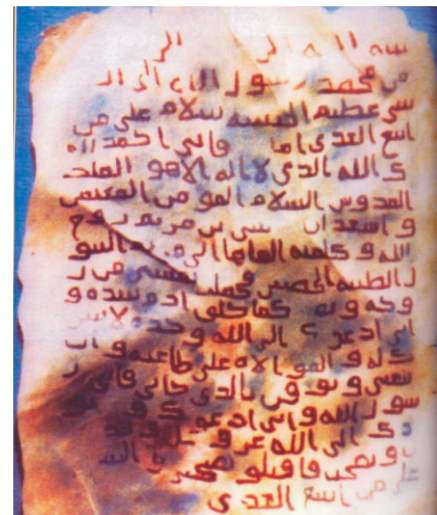 من محمد رسول الله الى ال
سى عظيم الحبشه سلام على من
اتبع الهدى اما فانى احمد الي
ك الله الذى لا اله الا هو الملك
القدوس السلام المومن المهيمن
و اشهد ان عيسى بن مريم روح
الله و كلمته القاها الى مريم البتو
ل الطيبه الحصينه فحملت بعيسى من ر
وحه و كما خلق ادم بيده و
انى ادعوك الى الله وحده لا شر
يك له و الموالاه على طاعته و ان
تتبعنى و توقن بالذى جانى فانى ر
سول الله و انى ادعوك و
ك الى الله عز و جل و قد
و نصحت فاقبلو نصيحتى و السلم
على من اتبع الهدى